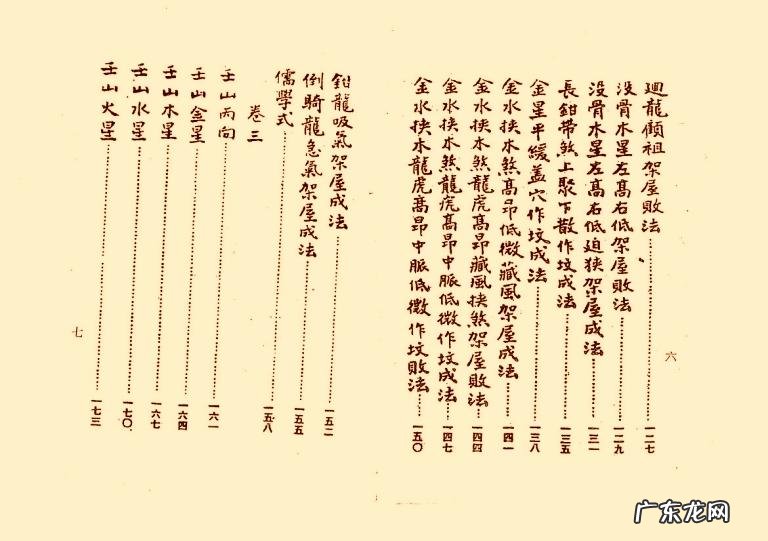 廻龍顧祖架屋敗法……一二七
沒骨木星左高右低架屋敗法……一二九
沒骨木星左髙右低迫狹架屋成法……一三一
長鉗帶煞上聚下散作坟成法……一三五
金星平緩蓋穴作坟成法……一三八
金水挟木煞髙昂低微藏風架屋成法……一四一
金水挟木煞龍虎髙昂藏風挟煞架屋敗法……一四四
金水挟木煞龍虎髙昂中脈低微作坟成法……一四七
金水挟木龍虎髙昂中脈低微作坟敗法……一五〇
六
鉗龍吸氣架屋成法……一五二
倒騎龍急氣架屋成法……一五五
儒學式……一五八
卷三
壬山丙向……一六一
壬山金星……一六四
壬山木星……一六七
壬山水星……一七〇
壬山火星……一七三
七
广东龙网